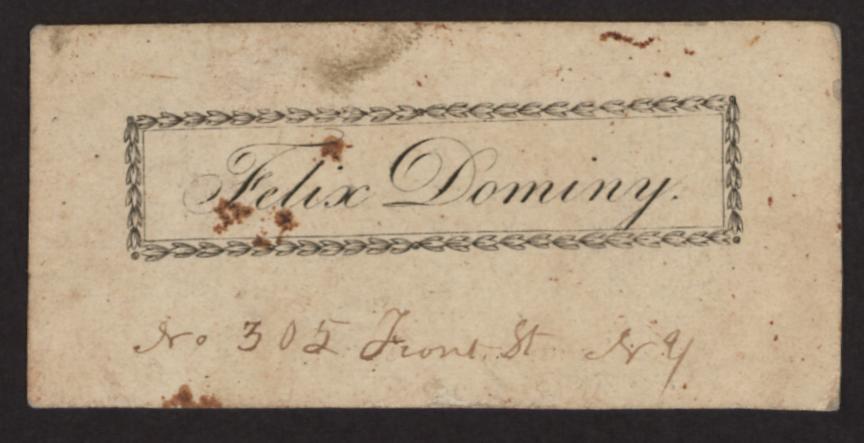 Felix Dominy.
No 305 Front St N Y